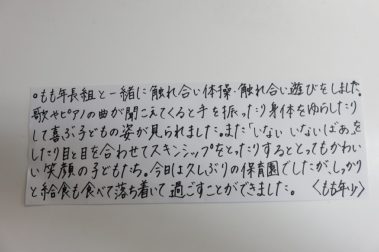 。もも年長組と一緒に触れ合い体操・触れ合い遊びをしました。
歌やピアノの曲が聞こえてくると手を振ったり身体をゆらしたり
して喜ぶ子どもの姿が見られました。また「いない いないばあ」を
したり目と目を合わせてスキンシップをとったりするととってもかわい
い笑顔の子どもたち。今日は久しぶりの保育園でしたが、しっかり
と給食も食べて落ち着いて過ごすことができました。〈もも年少〉